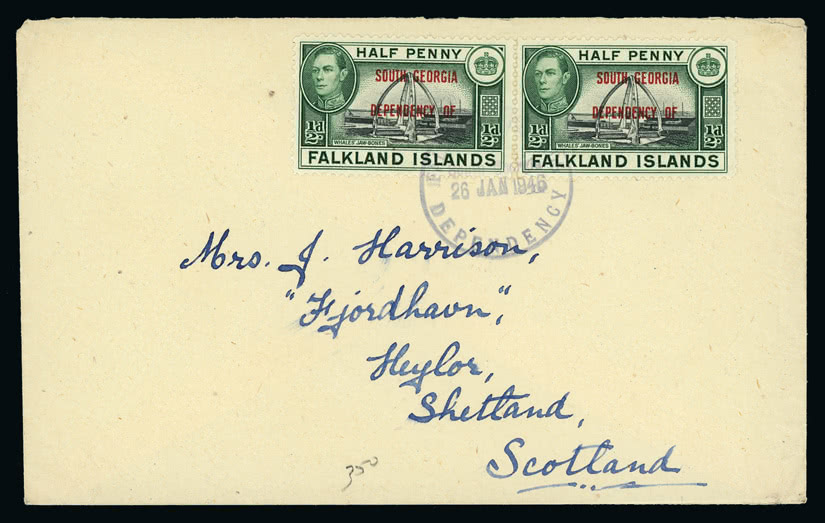 HALF PENNY
SOUTH GEORGIA
DEPENDENCY OF
½d ½d
WHALES' JAW-BONES
FALKLAND ISLANDS
HALF PENNY
SOUTH GEORGIA
DEPENDENCY OF
½d ½d
WHALES' JAW-BONES
FALKLAND ISLANDS
26 JAN 1946
DEPENDENCY
Mrs. J. Harrison,
"Fjordhavn",
Heylor,
Shetland,
Scotland
350